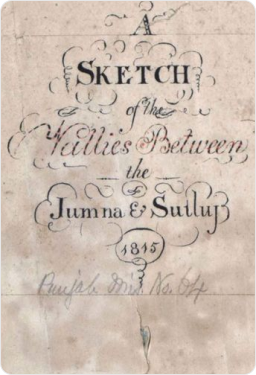 A
SKETCH
of the
Vallies Between
the
Jumna & Sutluj
1815
Punjab Mis. No. 64